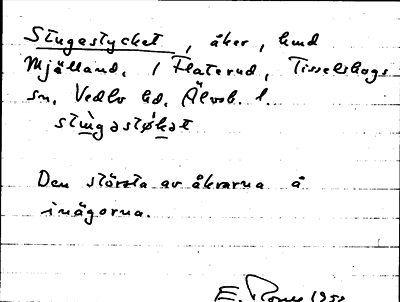 Stugastycket, åker, hmd
Mjälland, 1 Flaterud, Tisselskogs
sn, Vedbo hd, Älvsb. l.
stùgastøkat
Den största av åkrarna å
inägorna.
E. 1952